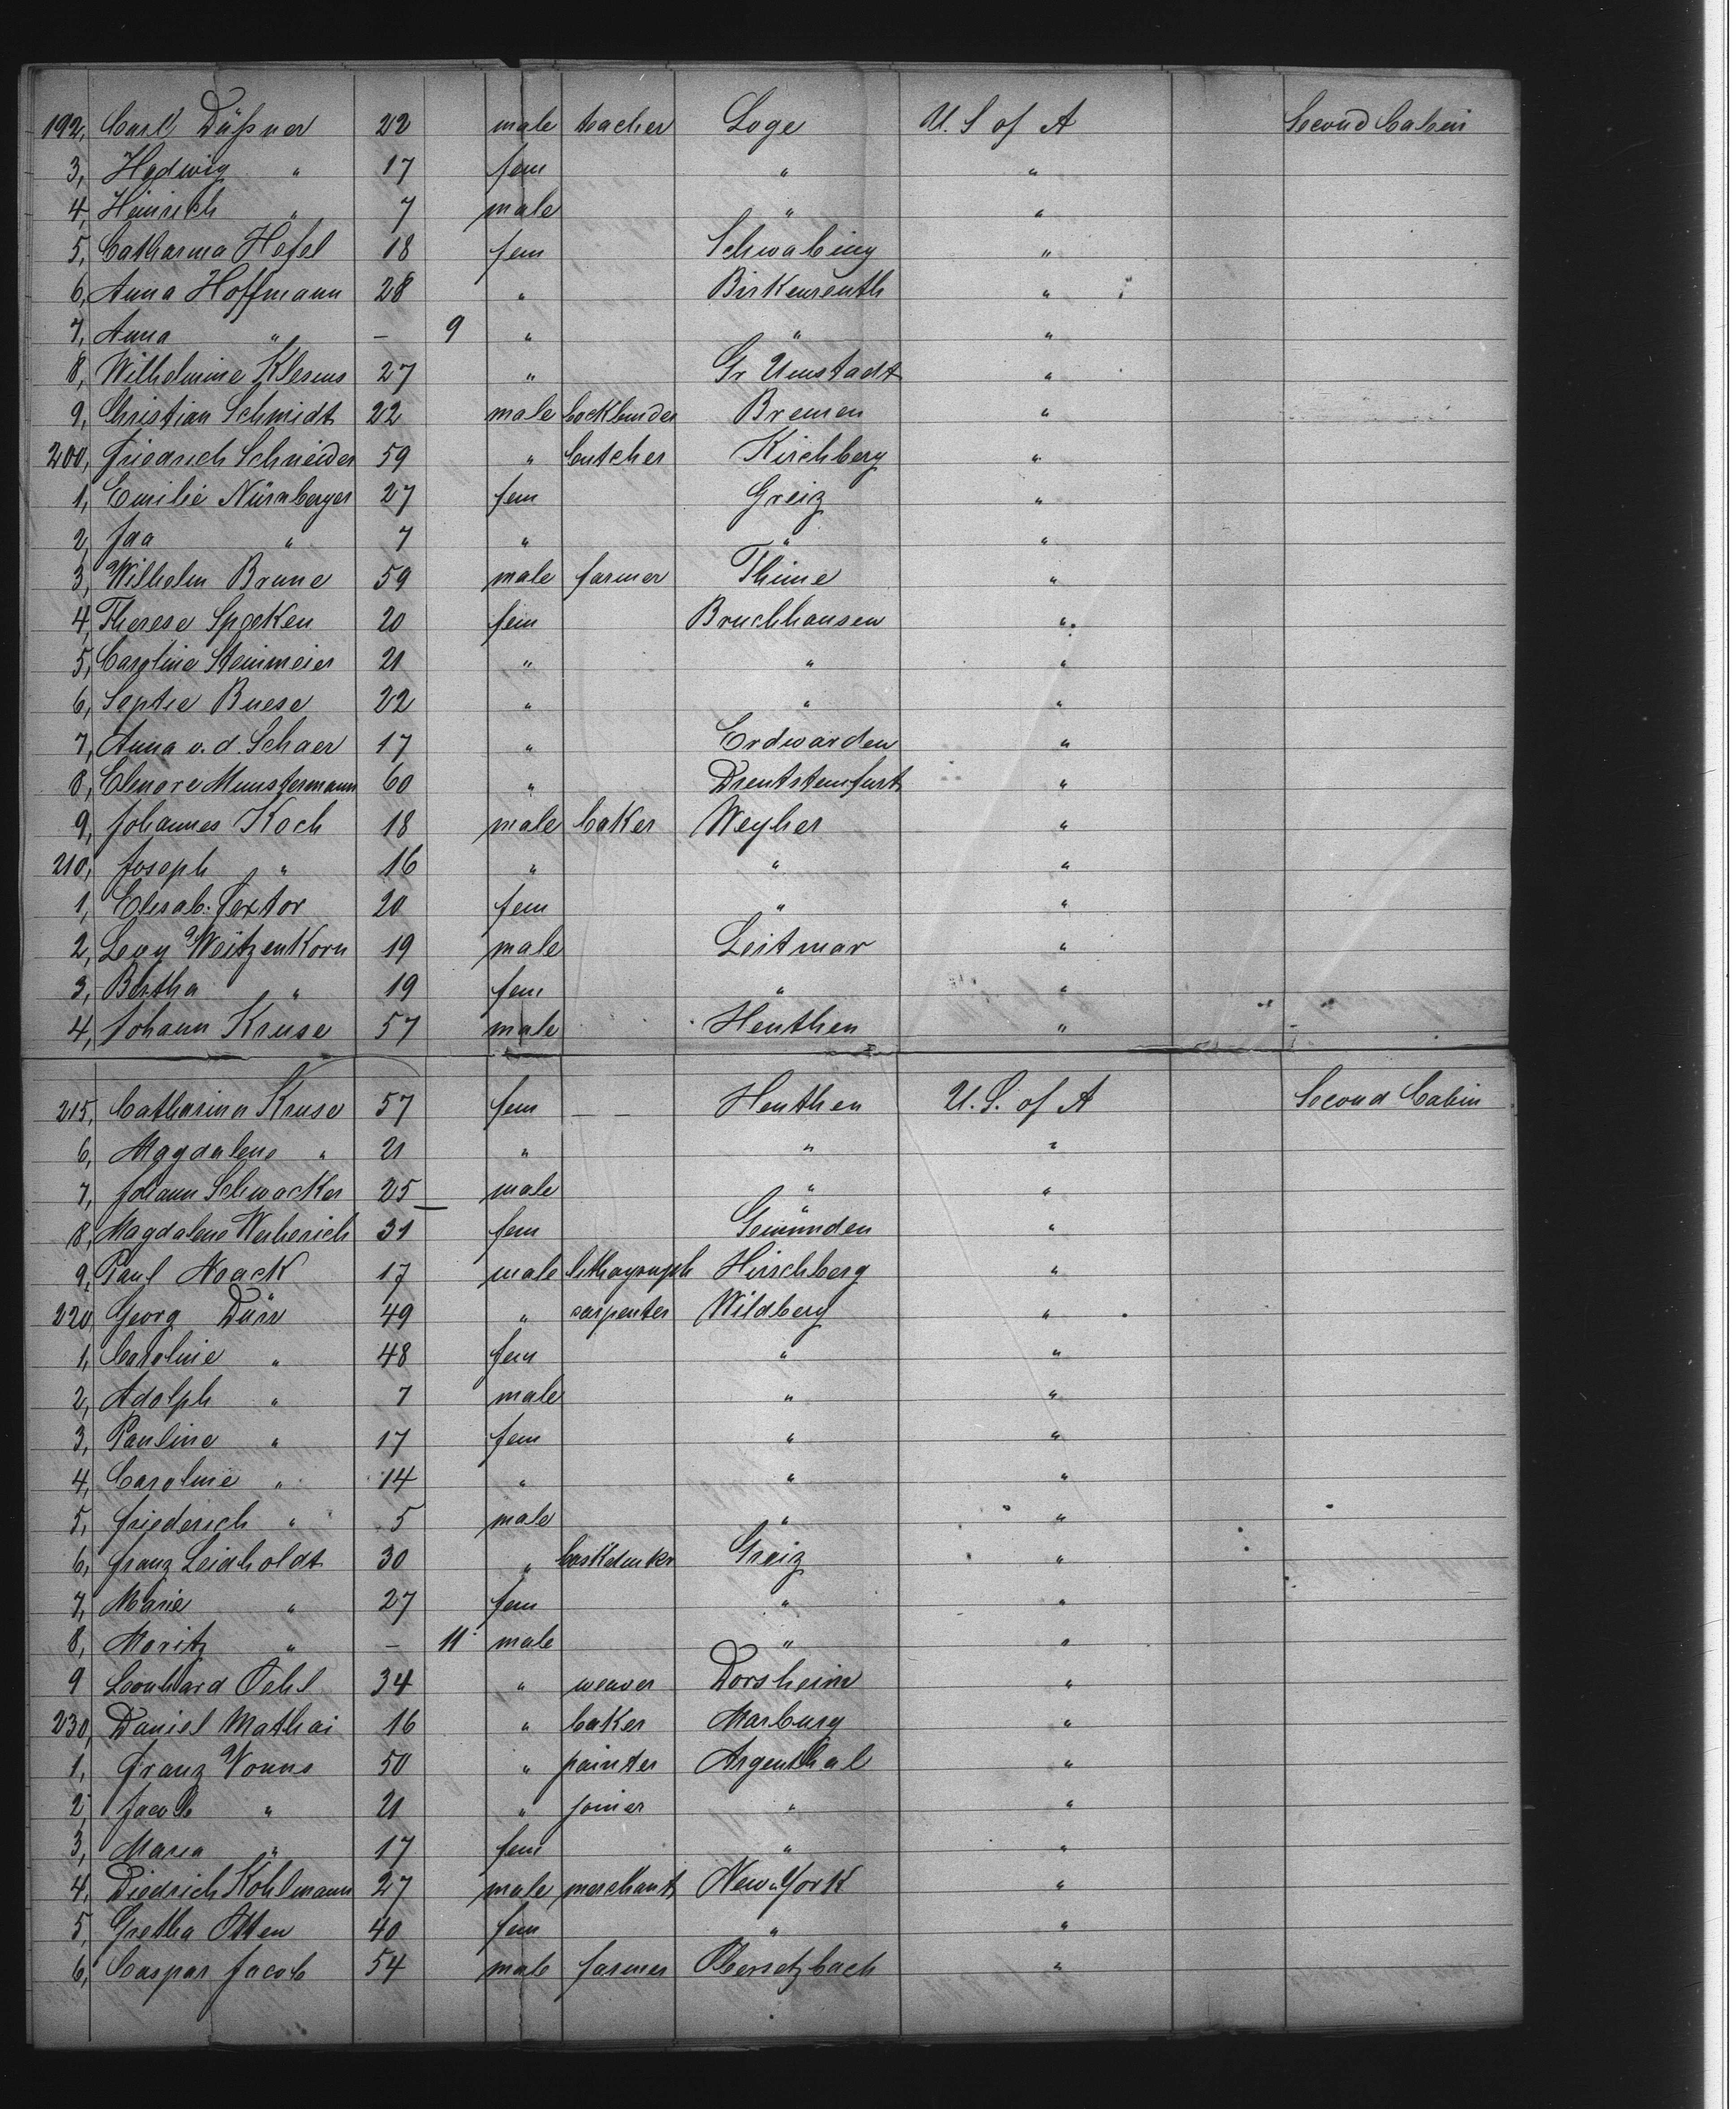 192, Carl Düßner 22 male teacher Loge U. S of A Second Cabin
3, Hedwig " 17 fem " "
4, Heinrich " 7 male " "
5, Catharina Hefel 18 fem Schwabing "
6, Anna Hoffmann 28 " Birkenreuth "
7, Anna " – 9 " " "
8, Wilhelmine Klesms 27 " Gr Umstadt "
9, Christian Schmidt 22 male bockbinder Bremen "
200, Friedrich Schneider 59 " butcher Kirchberg "
1, Emilie Nürnberger 27 fem Greiz "
2, " 7 " " "
3, Wilhelm Brune 59 male farmer Thime "
4, Therese Specken 20 fem Bruchhausen "
5, Caroline Steinmeier 21 " " "
6, Sophie Buese 22 " " "
7, Anna v. d. Schaer 17 " Erdwarden "
8, Elenore Munstermann 60 " Drentsteinfurt "
9, Johannes Koch 18 male baker Weyher "
210, Joseph " 16 " " "
1, Elisab. Sextor 20 fem " "
2, Levy Weitzenkorn 19 male Leitmar "
3, Bertha " 19 fem " "
4, Johann Kruse 57 male Henthen "
215, Catharina Kruse 57 fem – – Henthen U. S. of A Second Cabin
6, Magdalene " 21 " " "
7, Johann Schwacker 25 male " "
8, Magdalene Weiherich 31 fem Gemünden "
9, Paul Noack 17 male lithograph Hirschberg "
220, Georg Dürr 49 " carpenter Wildberg "
1, Caroline " 48 fem " "
2, Adolph " 7 male " "
3, Pauline " 17 fem " "
4, Caroline " 14 " " "
5, Friederich " 5 male " "
6, Franz Leidholdt 30 " Greiz "
7, Marie " 27 fem " "
8, Moritz " – 11 male " "
9 Leonhard Oehl 34 " weaver Dorsheim "
230, Daniel Mathai 16 " baker Marburg "
1, Franz Vonns 50 " painter Argenthal "
2, Jacob " 21 " joiner " "
3, Maria " 17 fem " "
4, Diedrich Kohlmann 27 male merchant New York "
5, Gretha Otten 40 fem " "
6, Caspar Jacob 54 male farmer "